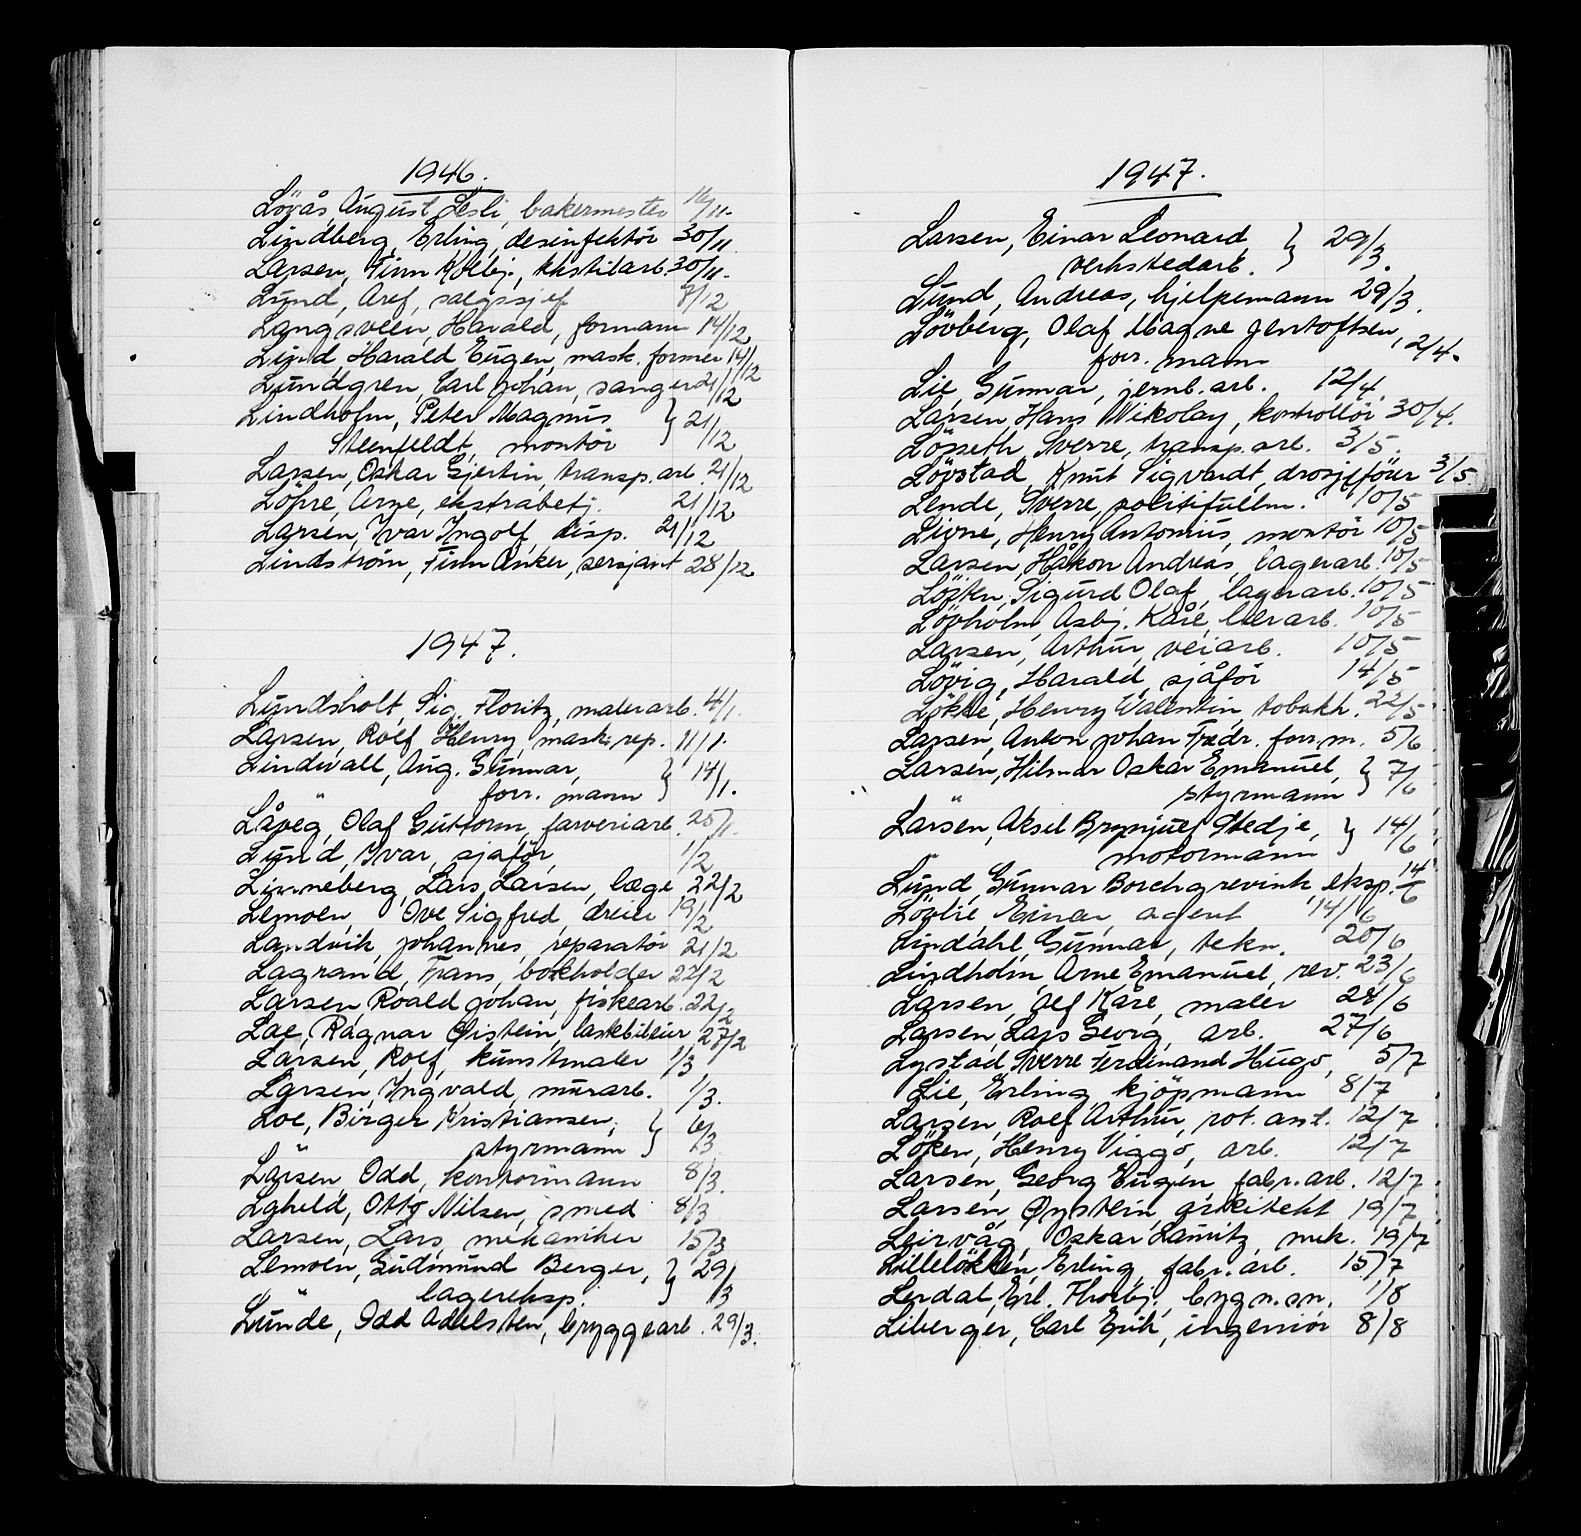 1946.
Lövås, August Lesli, bakermester 16/11.
Lindberg, Erling, desinfektör 30/11
Larsen, Finn Kolbj., 30/11.
Lund, Aref, salgssjef 7/12
Langsveen, Harald, formann 14/12
Lund, Harald Eugen, mask. former 14/12
Lundgren, Carl Johan, sanger 21/12
Lindholm, Peter Magnus } 21/12
Steenfeldt, montör
Larsen, Oskar Gjertin, transp. arb. 21/12
Löhre, Arne, ekstrabetj. 21/12
Larsen, Ivar Ingolf, disp. 21/12
Lindström, Finn Anker, sersjant 28/12
1947.
Lundsholt, Sig. Floritz, malerarb. 4/1.
Larsen, Rolf Henry, mask. rep. 11/1.
Lindvall, Aug. Gunnar, } 14/1.
forr. mann
Låveg, Olaf Guttorm, farveriarb. 25/1.
Lund, Ivar, sjåför, 1/2
Linneberg, Lars Larsen, læge 22/2
Lemoen, Ove Sigfred, dreier 19/2
Landvik, Johannes, reparatör 21/2
Lagrand, Frans, bokholder 22/2
Larsen, Roald Johan, fiskearb. 22/2
Loe, Ragnar Øistein, lastebileier 27/2
Larsen, Rolf, kunstmaler 1/3
Larsen, Ingvald, murarb. 1/3.
Loe, Birger Kristiansen, } 6/3
styrmann
Larsen, Odd, kontormann 8/3.
Lyheld, Otto Nilsen, smed 8/3
Larsen, Lars, mekaniker 15/3
Lemoen, Gudmund Berger, } 29/3
lagereksp.
Lunde, Odd Adelsten, bryggearb. 29/3.
1947.
Larsen, Einar Leonard } 29/3.
verkstedarb.
Lund, Andreas, hjelpemann 29/3.
Lövberg, Olaf Magne Gentoftsen, 2/4.
forr. mann
Lie, Gunnar, jernb. arb. 12/4.
Larsen, Hans Nikolay, kontrollör 30/4.
Lösseth, Sverre, transp. arb. 3/5.
Lövstad, Knut Sigvardt, drosjeförer 3/5
Lende, Sverre, politifullm. 10/5
Livne, Henry Antonius, montör 10/5
Larsen, Håkon Andreas, lagerarb. 10/5
Lövten, Sigurd Olaf, lagerarb. 10/5
Lövholm, Asbj. Kåre, lærarb. 10/5
Larsen, Arthur, veiarb. 10/5
Lövig, Harald, sjåför 14/5
Lökke, Henry Valentin, tobakh. 22/5
Larsen, Anton Johan Fredr. forr. m. 5/6
Larsen, Hilmar Oskar Emanuel, } 7/6
styrmann
Larsen, Aksel Brynjulf Stedje, } 14/6
motormann
Lund, Gunnar Borchgrevink, eksp. 14/6
Lövlie, Einar, agent 14/6
Lindahl, Gunnar, tekn. 20/6
Lindholm, Arne Emanuel, rev. 23/6
Larsen, Alf Kåre, maler 28/6
Larsen, Lars Georg, arb. 27/6
Lystad, Sverre Ferdinand Hugo, 5/7
Lie, Erling, kjöpmann 8/7
Larsen, Rolf Arthur, rot. ass. 12/7
Löken, Henry Viggo, arb. 12/7
Larsen, Georg Eugen, fabr. arb. 12/7
Larsen, Øystein, arkitekt 19/7
Leirvåg, Oskar Lauritz, mek. 19/7
Lillelökken, Erling, fabr. arb. 15/7
Lerdal, Erl. Thorbj., bygn. sn. 1/8
Liberger, Carl Erik, ingeniör 8/8